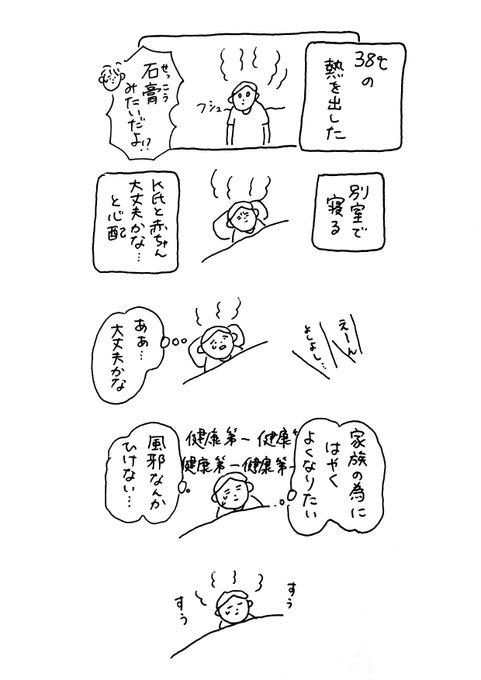 38℃の
熱を出した
フシュー
せっこう
石膏
みたいだよ!?
別室で
寝る
K氏と赤ちゃん
大丈夫かな…
と心配
えーん
よしよし…
ああ…
大丈夫かな
家族の為に
はやく
よくなりたい
健康第一健康第
健康第一健康第一
風邪なんか
ひけない…
すう
すう